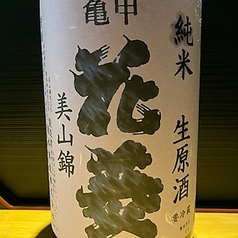 亀甲
花菱
純米 生原酒
美山錦
要冷蔵